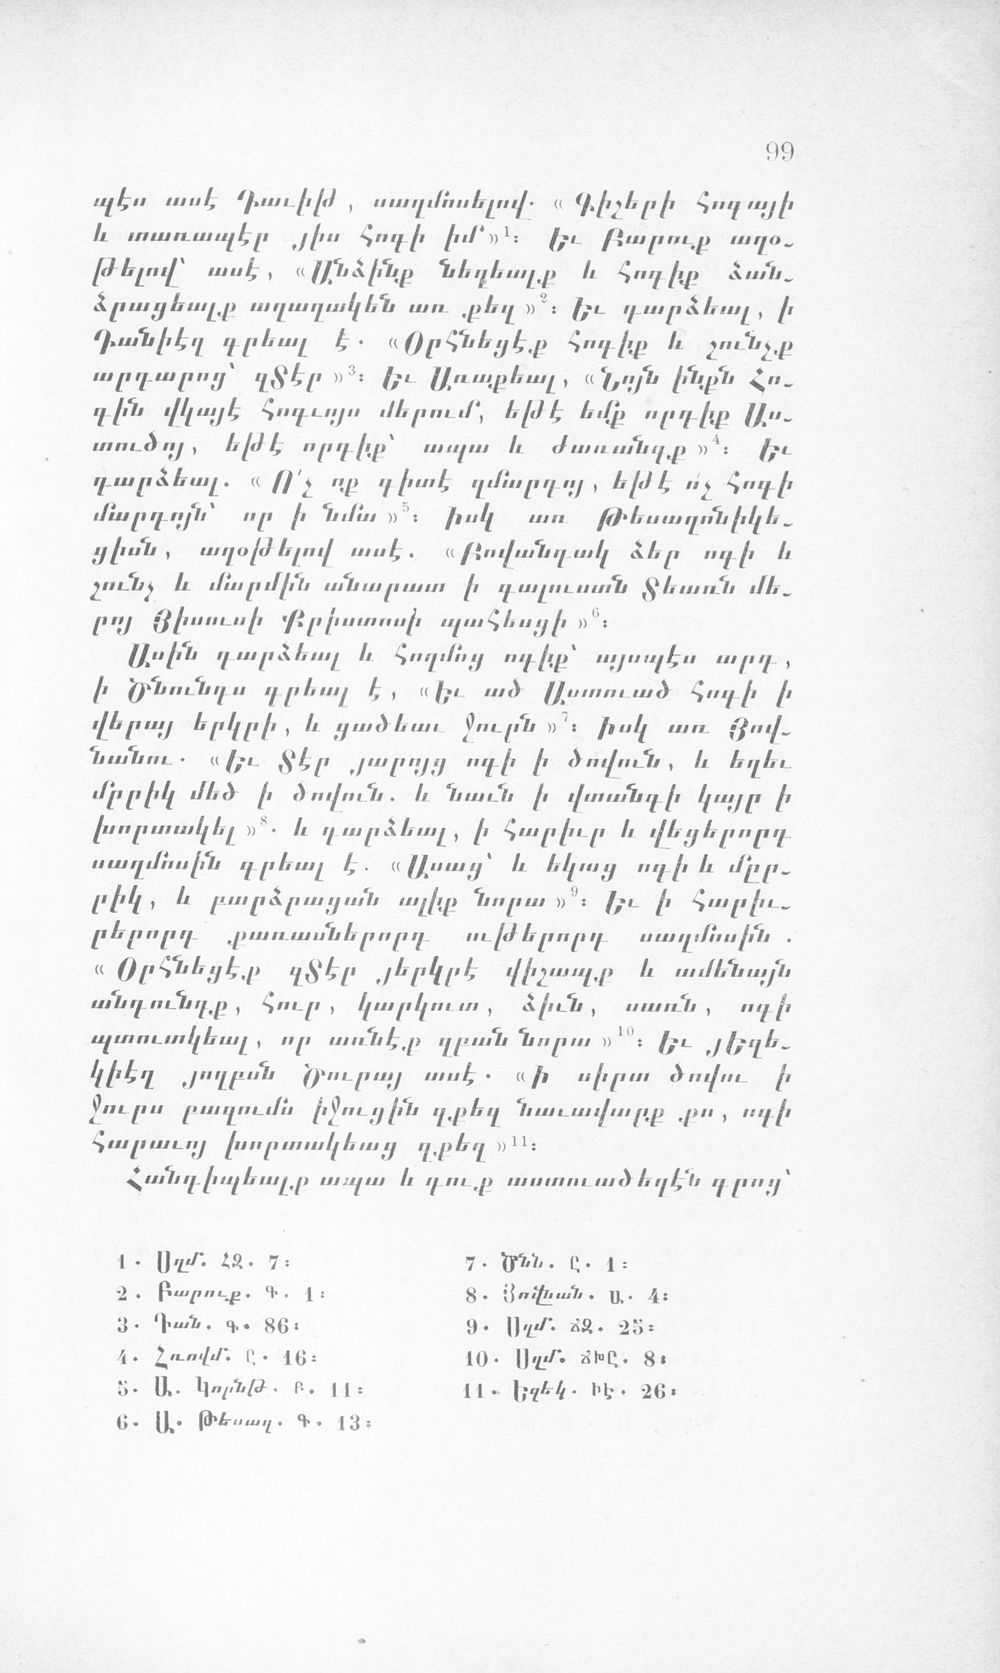 99
պէս ասէ Դաւիթ, սաղմոսելով. «Գիշերի հոգայի
և տառապէր յիս հոգի իմ»¹։ Եւ Բարուք աղօ֊
թելով՝ ասէ, «Անձինք նեղեալք և հոգիք ձան֊
ձրացեալք աղաղակեն առ քեզ»²։ Եւ դարձեալ, ի
Դանիէղ գրեալ է. «Օրհնեցէք հոգիք և շունչք
արդարոց՝ զՏէր»³։ Եւ Առաքեալ, «Նոյն ինքն Հո֊
գին վկայէ հոգւոյս մերում, եթէ եմք որդիք Աս֊
տուծոյ, եթէ որդիք՝ ապա և ժառանգք»⁴։ Եւ
դարձեալ. «Ո՛չ ոք գիտէ զմարդոյ, եթէ ոչ հոգի
մարդոյն՝ որ ի նմա»⁵։ Իսկ առ Թեսաղոնիկե֊
ցիսն, աղօթելով ասէ. «Բովանդակ ձեր ոգի և
շունչ և մարմին անարատ ի գալուստն Տեառն մե֊
րոյ Յիսուսի Քրիստոսի պահեսցի»⁶։
Ասին դարձեալ և հողմոց ոգիք՝ այսպէս արդ,
ի Ծնունդս գրեալ է, «Եւ ած Աստուած հոգի ի
վերայ երկրի, և ցածեաւ ջուրն»⁷։ Իսկ առ Յով֊
նանու. «Եւ Տէր յարոյց ոգի ի ծովուն, և եղեւ
մրրիկ մեծ ի ծովուն. և նաւն ի վտանգի կայր ի
խորտակել»⁸. և դարձեալ, ի հարիւր և վեցերորդ
սաղմոսին գրեալ է. «Ասաց՝ և եկաց ոգի և մըր֊
րիկ, և բարձրացան ալիք նորա»⁹։ Եւ ի հարիւ֊
րերորդ քառասներորդ ութերորդ սաղմոսին.
«Օրհնեցէք զՏէր յերկրէ վիշապք և ամենայն
անդունդք, հուր, կարկուտ, ձիւն, սառն, ոգի
պտուտկեալ, որ առնէք զբան նորա»¹⁰։ Եւ յԵզե֊
կիէղ յողբսն Ծուրայ ասէ. «Ի սիրտ ծովու ի
ջուրս բազումս իջուցին զքեզ նաւավարք քո, ոգի
հարաւոյ խորտակեաց զքեզ»¹¹։
Հանդիպեալք ապա և դուք աստուածեղէն գրոց՝
1. Սղմ. ՀԶ. 7։
2. Բարուք. Գ. 1։
3. Դան. Գ. 86։
4. Հռովմ. Ը. 16։
5. Ա. Կորնթ. Բ. 11։
6. Ա. Թեսաղ. Գ. 13։
7. Ծնն. Ը. 1։
8. Յովնան. Ա. 4։
9. Սղմ. ՃԶ. 25։
10. Սղմ. ՃԽԸ. 8։
11. Եզեկ. ԻԷ. 26։